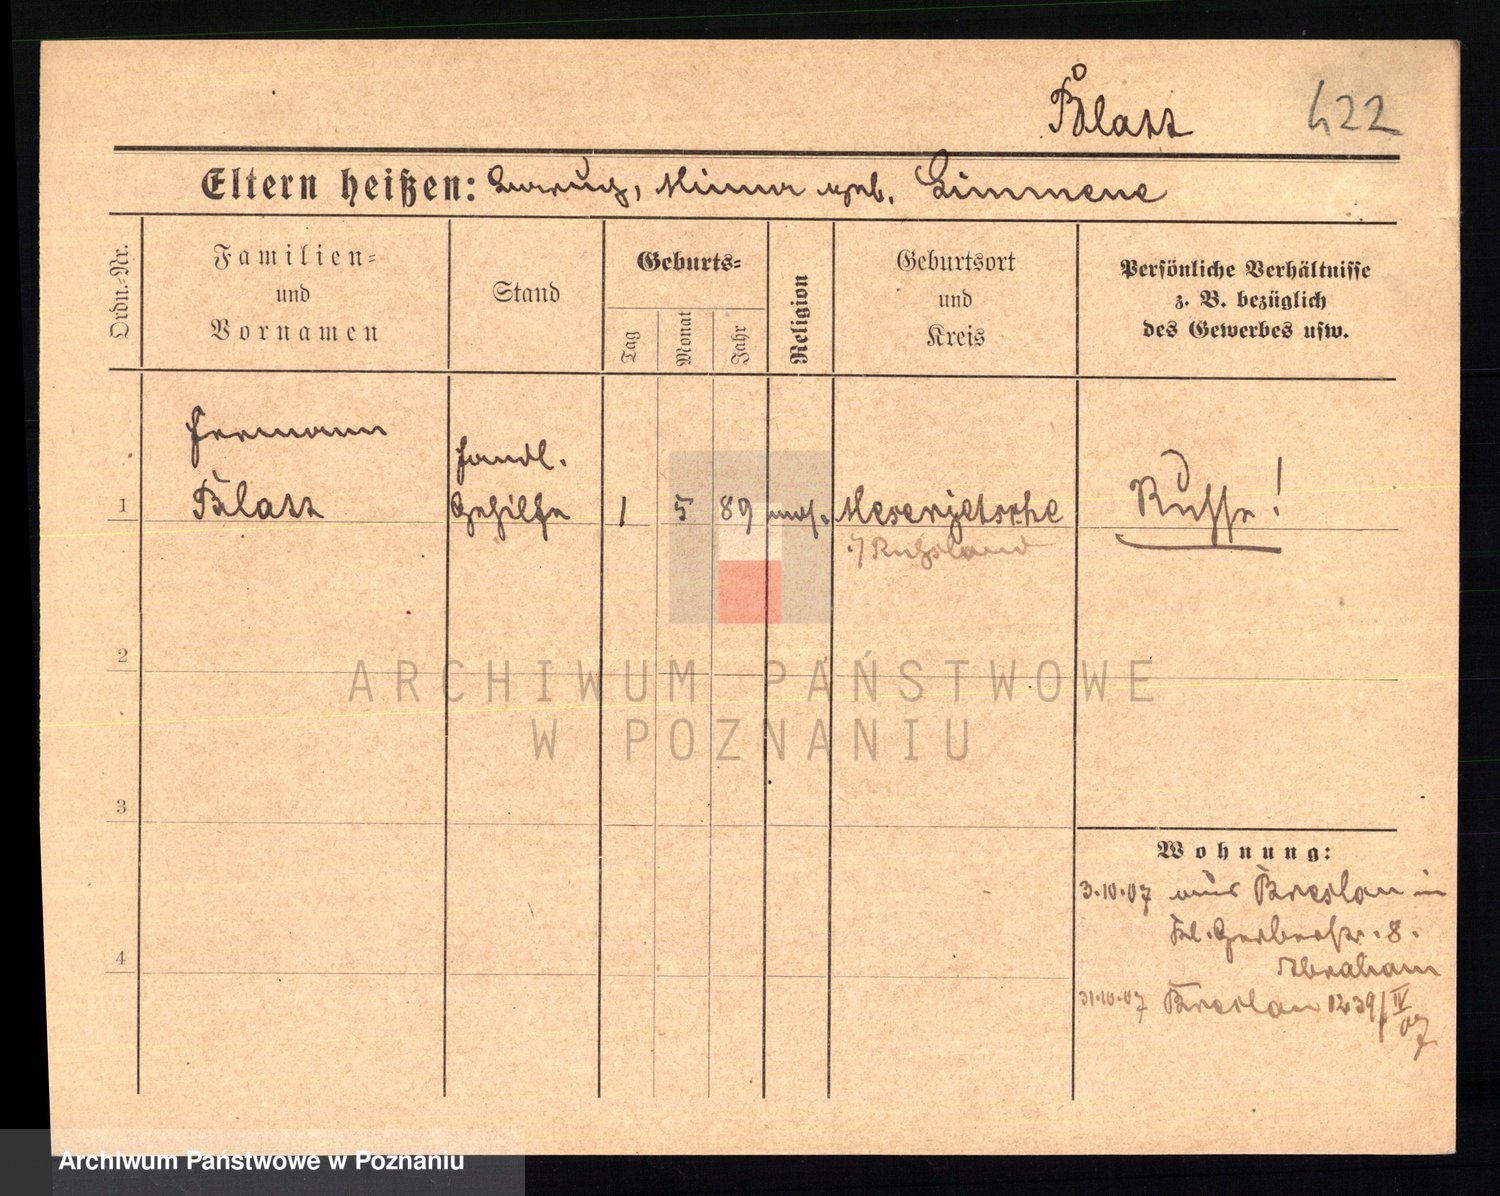 Blatt 422
Eltern heißen: Minna geb. Zimmene
Ordn.-Nr.
Familien-
und
Vornamen
Stand
Geburts-
Tag
Monat
Jahr
Religion
Geburtsort
und
Kreis
Persönliche Verhältnisse
z. B. bezüglich
des Gewerbes usw.
Hermann
Handl.
1 Blatt Gehilfe 1 5 89 mos. Meserzetsche Russe!
i/Russland
2
3
4
Wohnung:
3.10.07 aus Breslau in
Kl. Gerberstr. 8.
Abraham
31.10.07 Breslau 1239/IV
07
ARCHIWUM PAŃSTWOWE
W POZNANIU
Archiwum Państwowe w Poznaniu